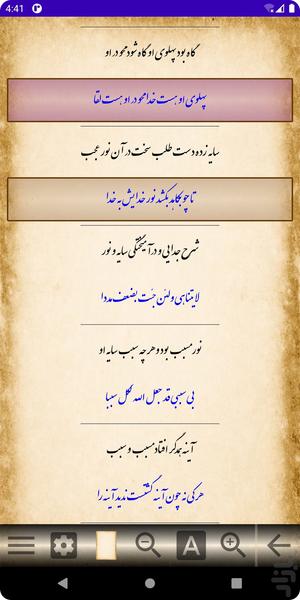 4:41
گاه بود پهلوی او گاه شود محو در او
پهلوی او هست خدا محو در او هست لقا
سایه زده دست طلب سخت در آن نور عجب
تا چو بکاهد بکشد نور خدایش به خدا
شرح جدایی و درآمیختگی سایه و نور
لا یتناهی و لئن جئت بضعف مددا
نور مسبب بود و هر چه سبب سایه او
بی سببی قد جعل الله لکل سببا
آینه همدگر افتاد مسبب و سبب
هر کی نه چون آینه گشتست ندید آینه را
A